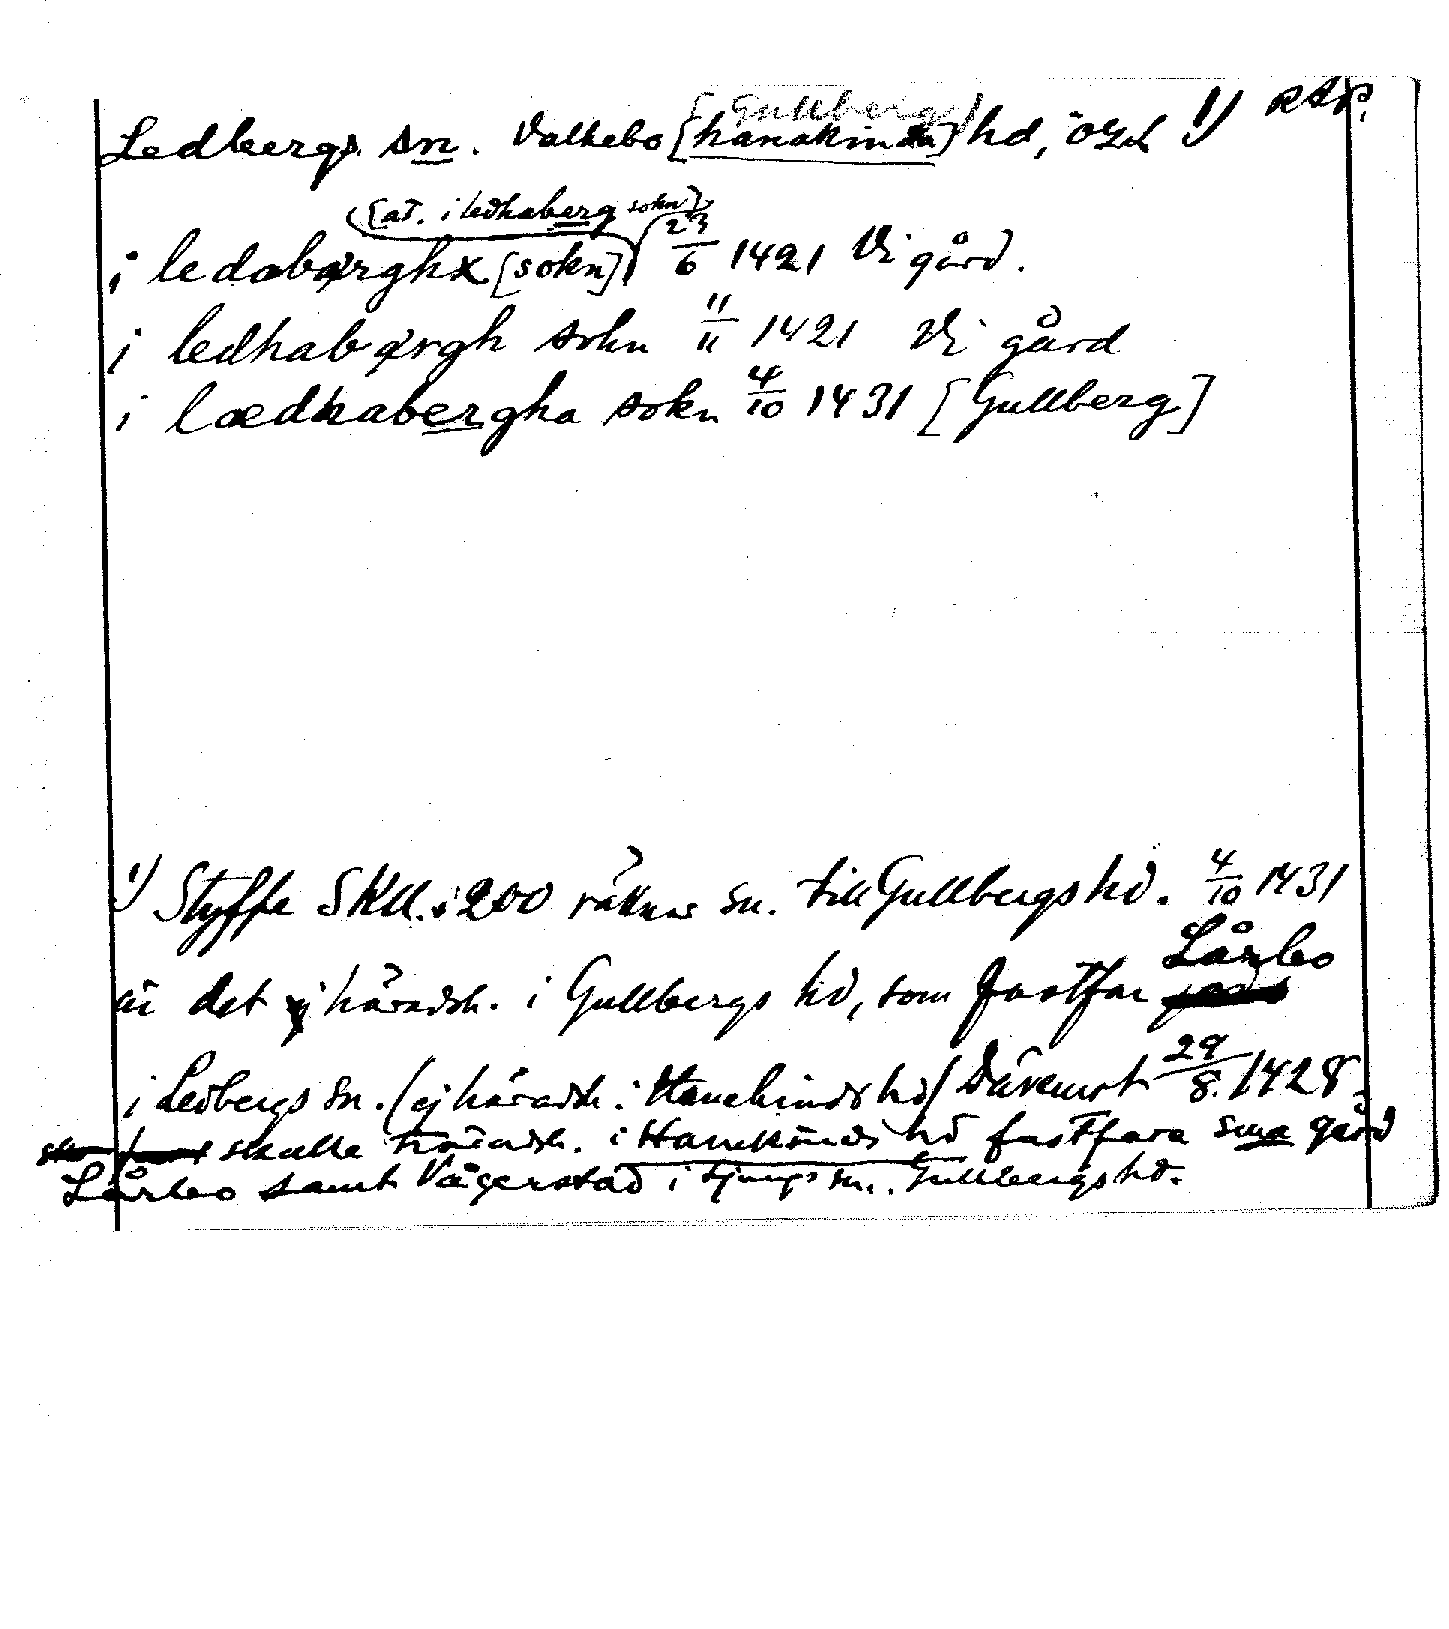 [Gullbergs]
Ledbergs sn. Valkebo [hanakinda] hd, Ögl 1) RAP.
[at. i ledhaberg sokn]
i ledabærghx [sokn] 23/6 1421 Vi gård.
i ledhabærgh sokn 11/11 1421 Vi gård
i lædhabergha sokn 4/10 1431 [Gullberg]
1) Styffe SKU. 200 räknar sn. till Gullbergs hd. 4/10 1431
är det ej häradsh. i Gullbergs hd, som fastfar Lårbo
i Ledbergs sn. (ej häradsh. i Hanekinds hd) Däremot 29/8. 1428.
skulle häradsh. i Hanekinds hd fastfara sma gård
Lårbo samt Vägerstad i Ljungs sn. Gullbergs hd.